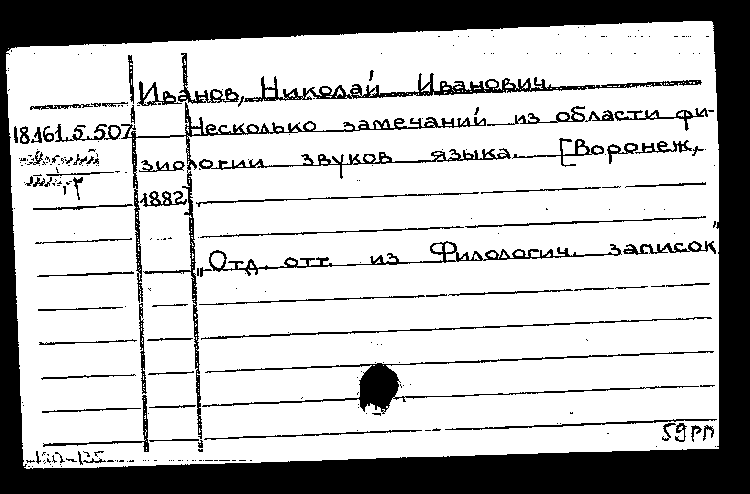 Иванов, Николай Иванович.
18.161.5.507 Несколько замечаний из области фи-
зиологии звуков языка. [Воронеж,
1882].
„Отд. отт. из Филологич. записок"
59РП